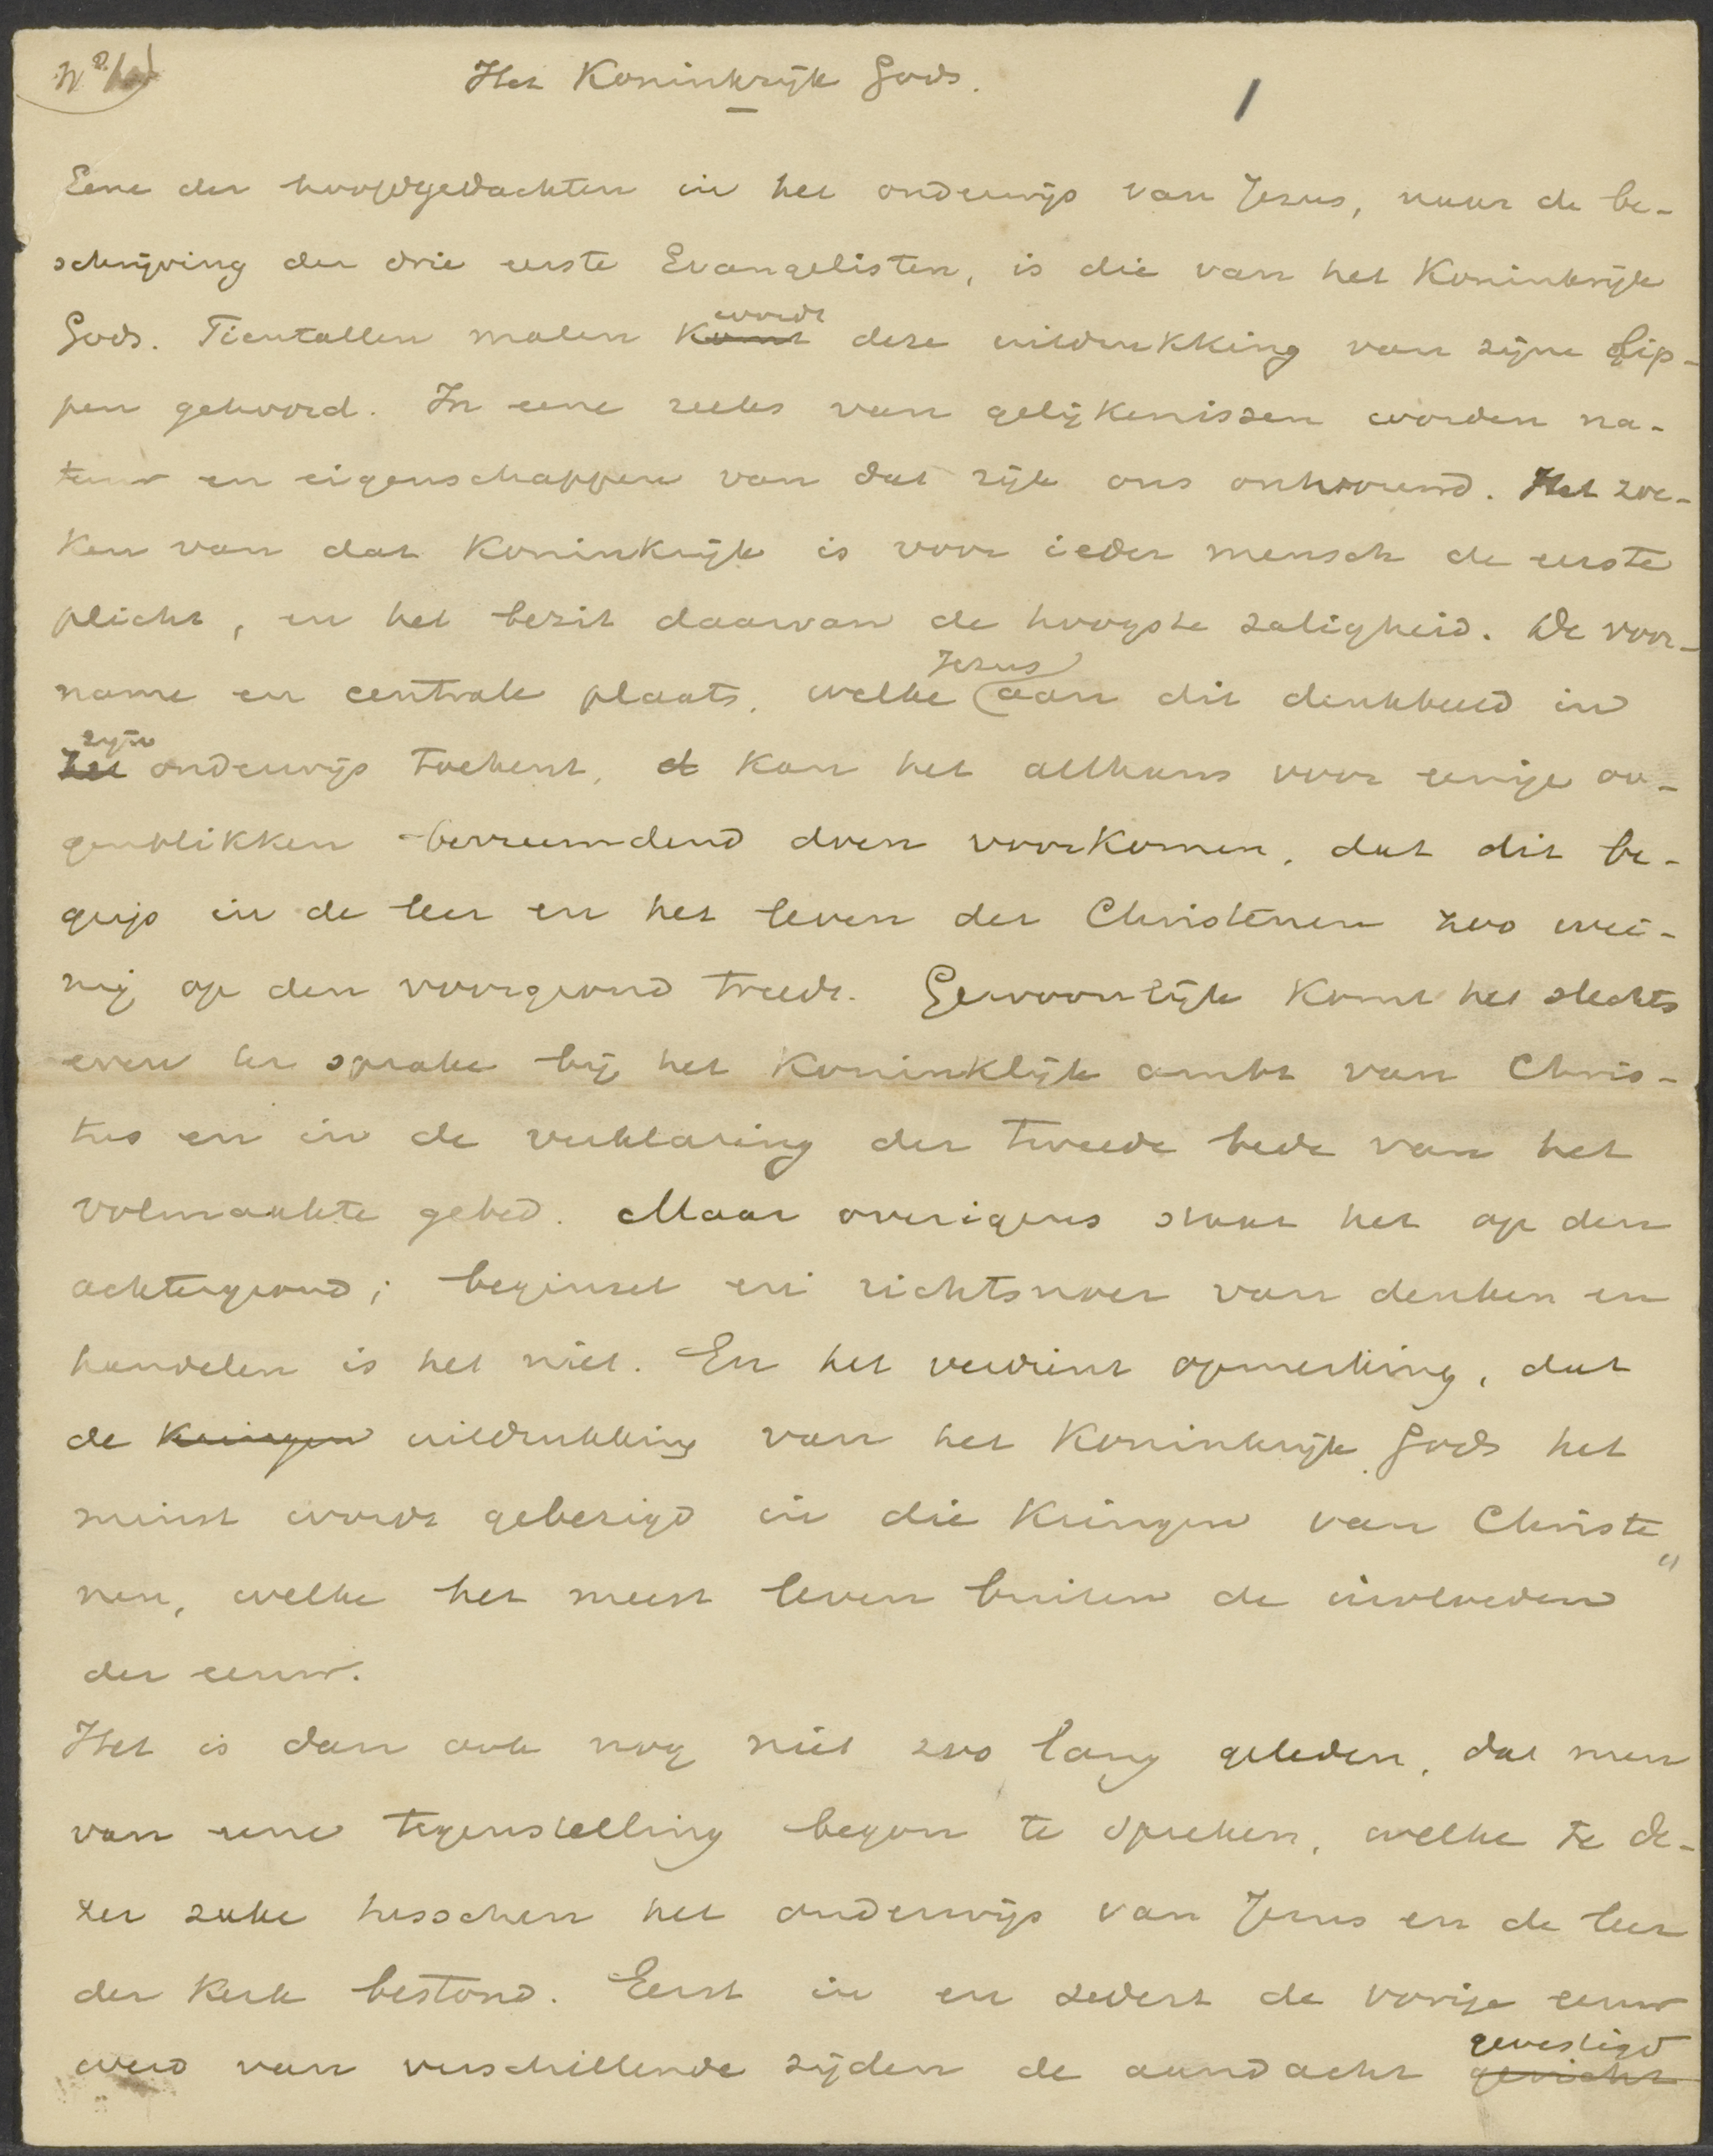 Het Koninkrijk Gods.
1
Eene der hoofdgedachten in het onderwijs van Jezus, naar de be-
schrijving der drie eerste Evangelisten, is die van het Koninkrijk
Gods. Tientallen malen komt wordt deze uitdrukking van zijne lip-
pen gehoord. In eene reeks van gelijkenissen worden na-
tuur en eigenschappen van dat rijk ons ontvouwd. Het zoe-
ken van dat Koninkrijk is voor ieder mensch de eerste
plicht, en het bezit daarvan de hoogste zaligheid. De voor-
name en centrale plaats, welke Jezus aan dit denkbeeld in
het zijn onderwijs toekent, d kan het althans voor eenige oo-
genblikken bevreemdend doen voorkomen, dat dit be-
grip in de leer en het leven der Christenen zoo wei-
nig op den voorgrond treedt. Gewoonlijk komt het slechts
even ter sprake bij het Koninklijk ambt van Chris-
tus en in de verklaring der tweede bede van het
volmaakte gebed. Maar overigens staat het op den
achtergrond; beginsel en richtsnoer van denken en
handelen is het niet. En het verdient opmerking, dat
de kringen uitdrukking van het Koninkrijk Gods het
minst wordt gebezigd in die kringen van Christe„
nen, welke het meest leven buiten de invloeden
der eeuw.
Het is dan ook nog niet zoo lang geleden, dat men
van eene tegenstelling begon te spreken, welke te de-
zer zake tusschen het onderwijs van Jezus en de leer
der kerk bestond. Eerst in en sedert de vorige eeuw
werd van verschillende zijden de aandacht gericht gevestigd